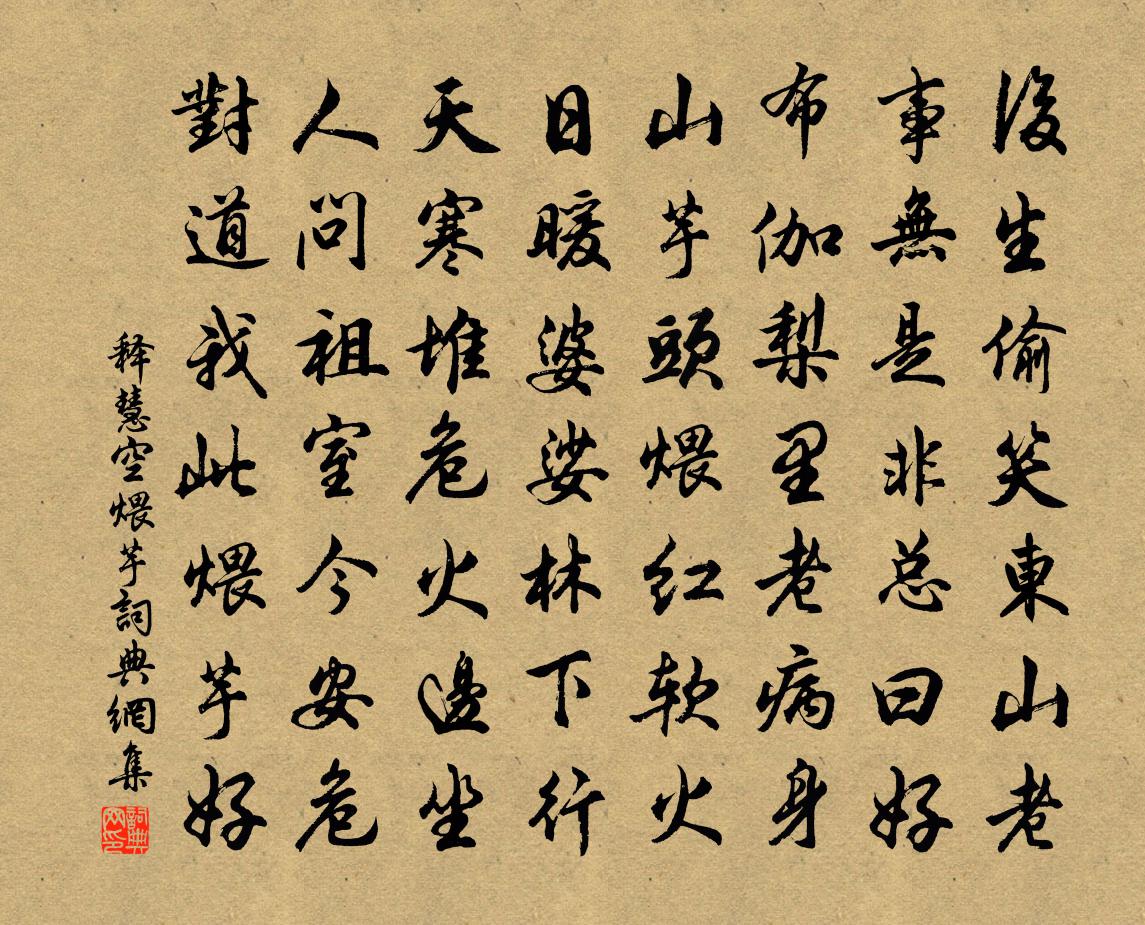 後生偷笑東山老
事無是非总曰好
布伽梨里老病身
山芋頭煨红软火
日暖婆娑林下行
天寒堆危火邊坐
人問祖室今安危
對道我此煨芋好
释慧空煨芋詞典網集
詞典网印